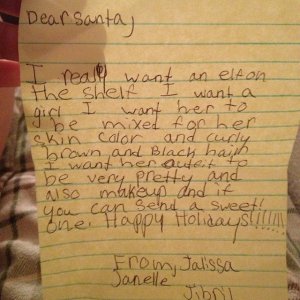 Dear Santa,
I really want an elf on
the shelf I want a
girl I want her to
be mixed for her
skin color and curly
brown and Black hair
I want her outfit to
be very pretty and
also makeup and if
you can send a sweet!
one. Happy Holidays!!!!!!!
From, Jalissa
Janelle
Jibril